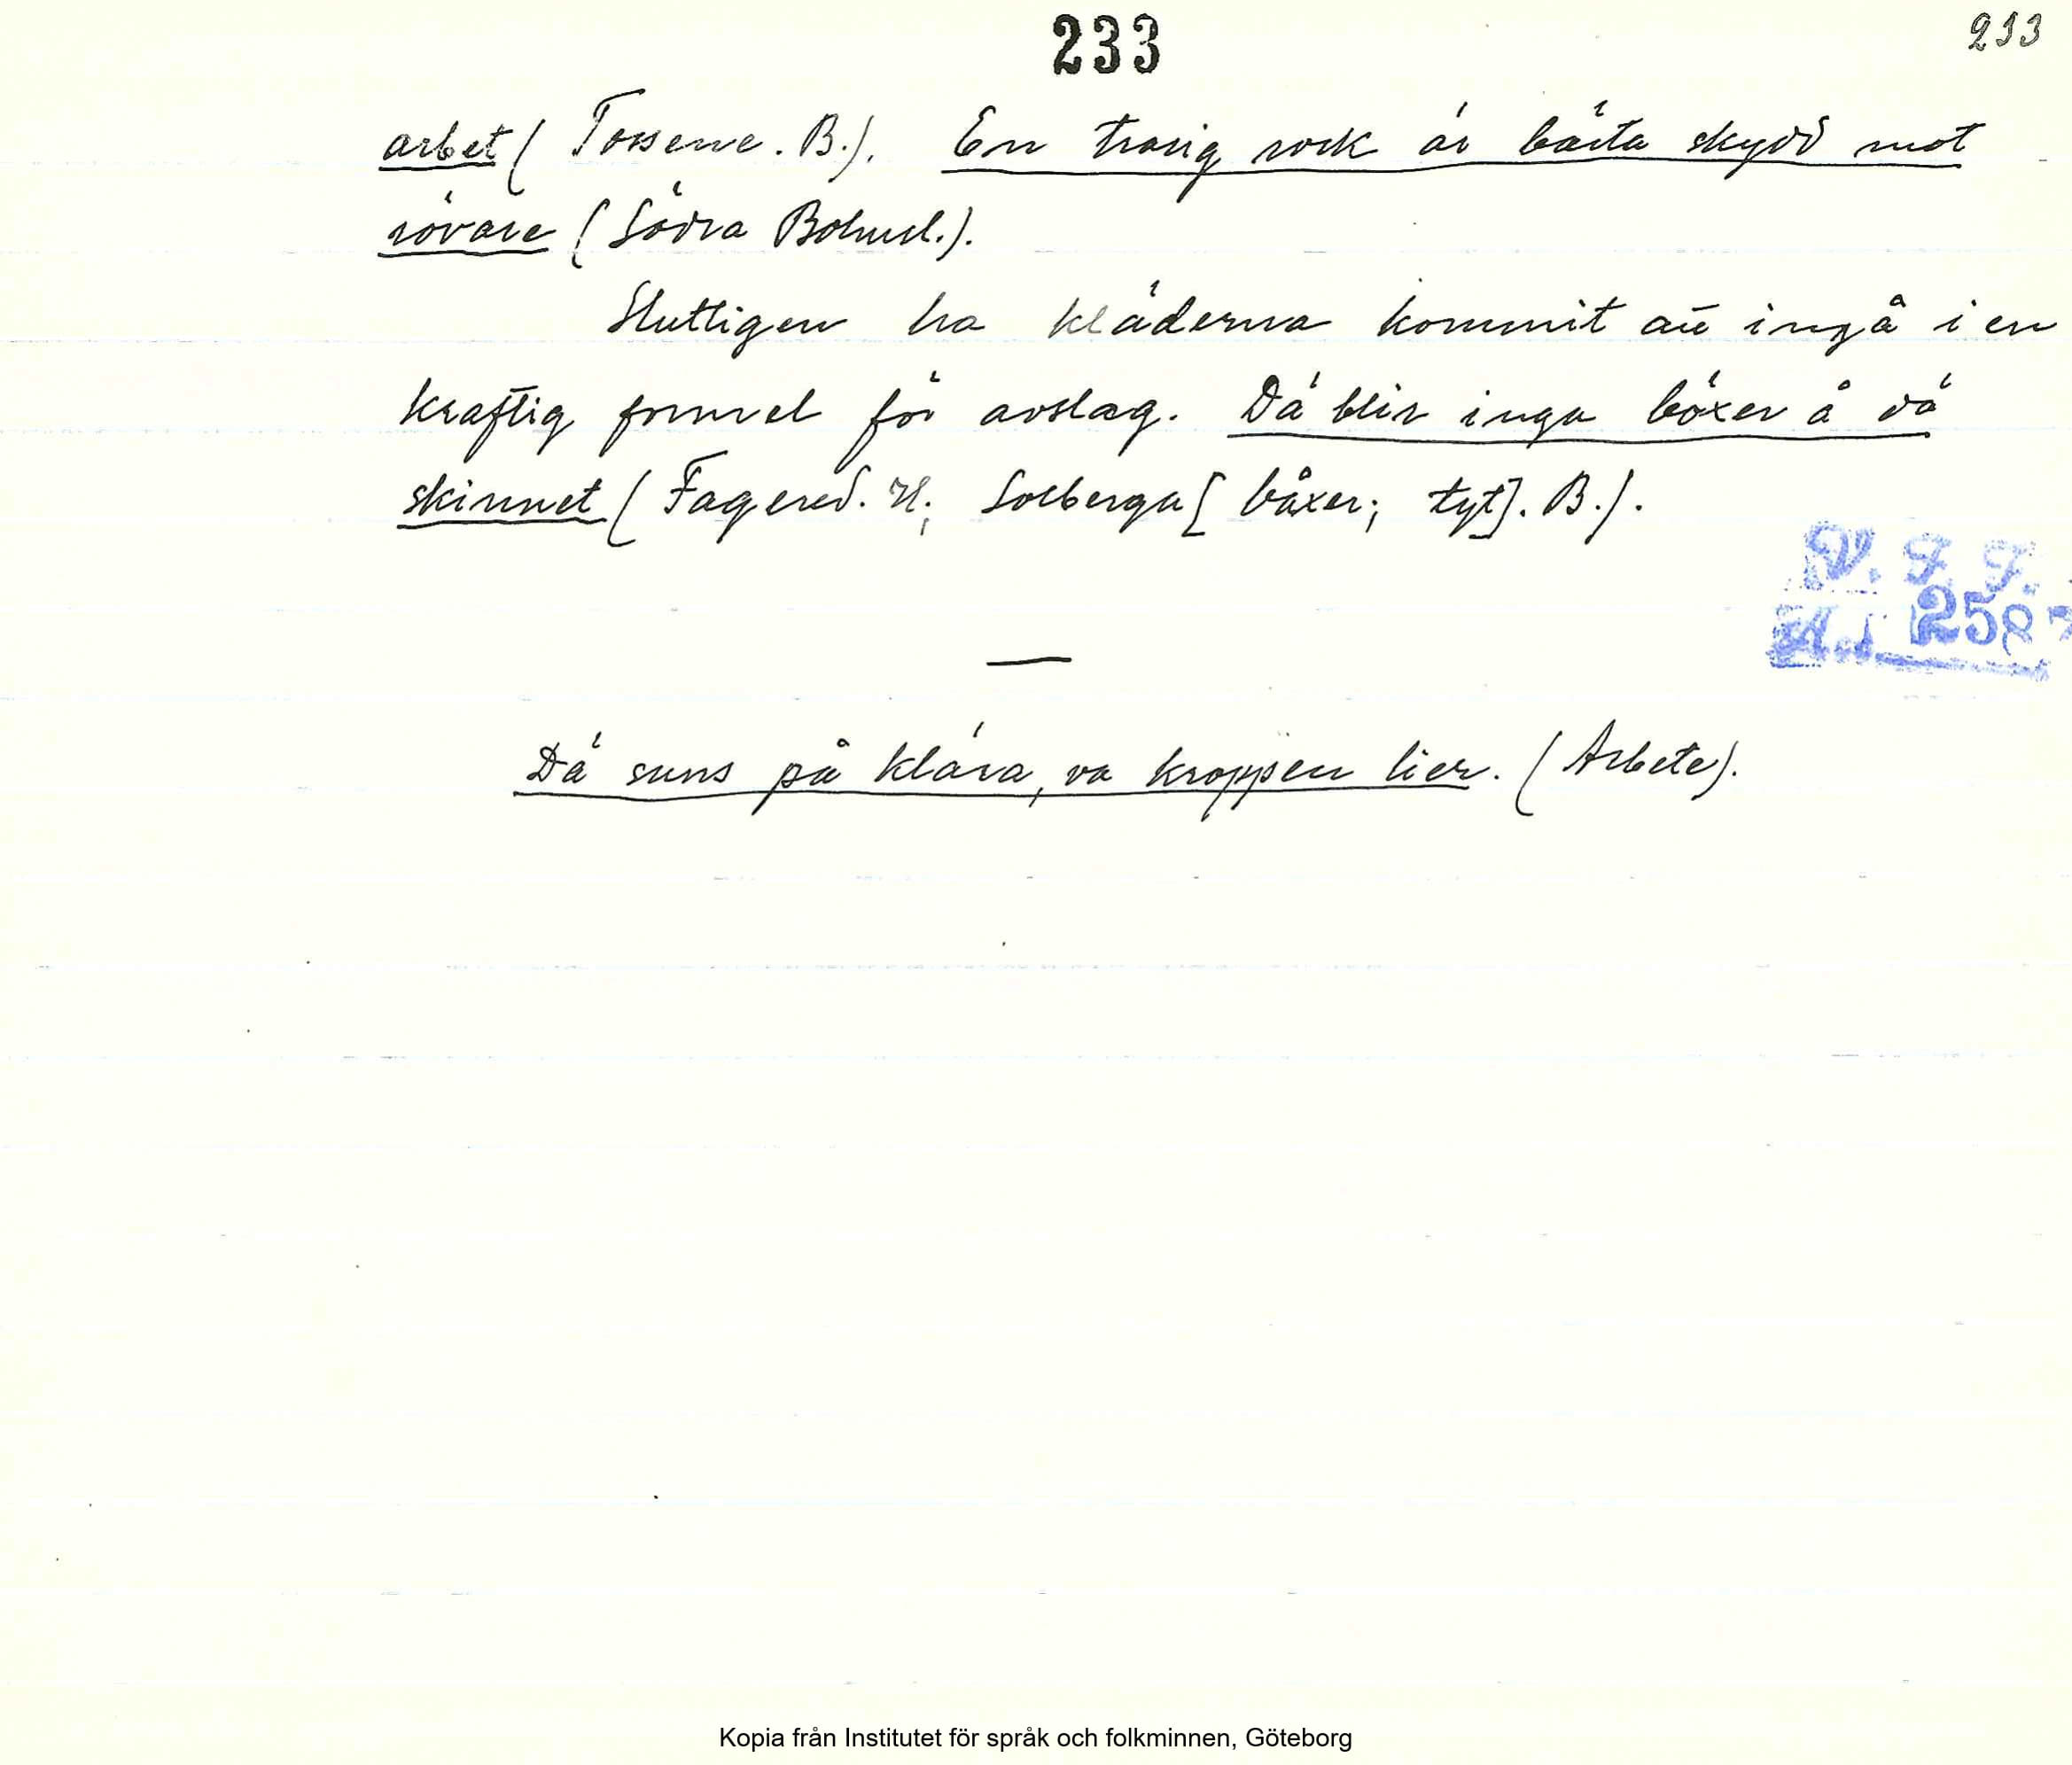 233
233
arbet (Tossene. B.). En trasig rock är bästa skydd mot
rövare (Södra Bohusl.).
Slutligen ha kläderna kommit att ingå i en
kraftig formel för avslag. Dä blir inga böxer å dä
skinnet (Fagered. H; Solberga [båxer; tyt]. B.).
V. F. F.
258
—
Dä suns på klära, va kroppen lier. (Arbete).
Kopia från Institutet för språk och folkminnen, Göteborg